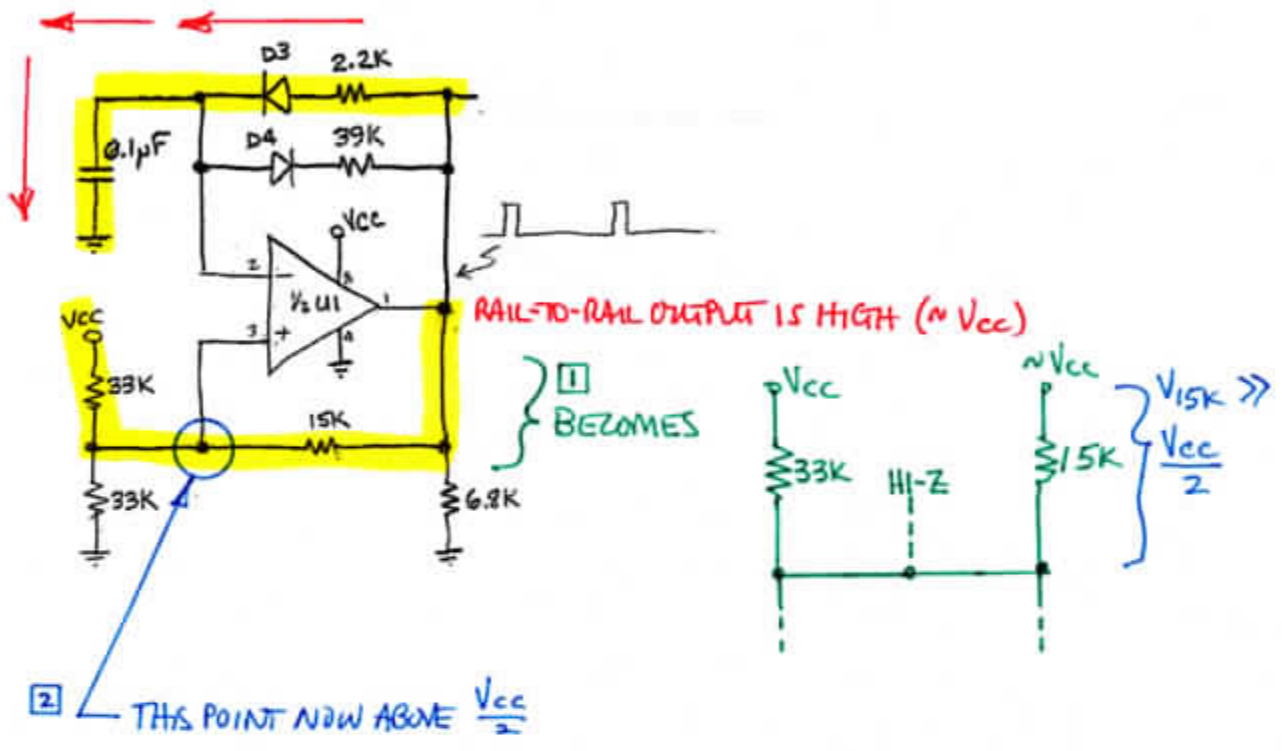 D3
2.2K
0.1µF
D4
39K
VCC
2
-
8
½ U1
1
3
+
4
RAIL-TO-RAIL OUTPUT IS HIGH (~ Vcc)
VCC
33K
15K
33K
6.8K
1
BECOMES
Vcc
33K
HI-Z
~Vcc
15K
V15K >>
Vcc
2
2
THIS POINT NOW ABOVE Vcc
2